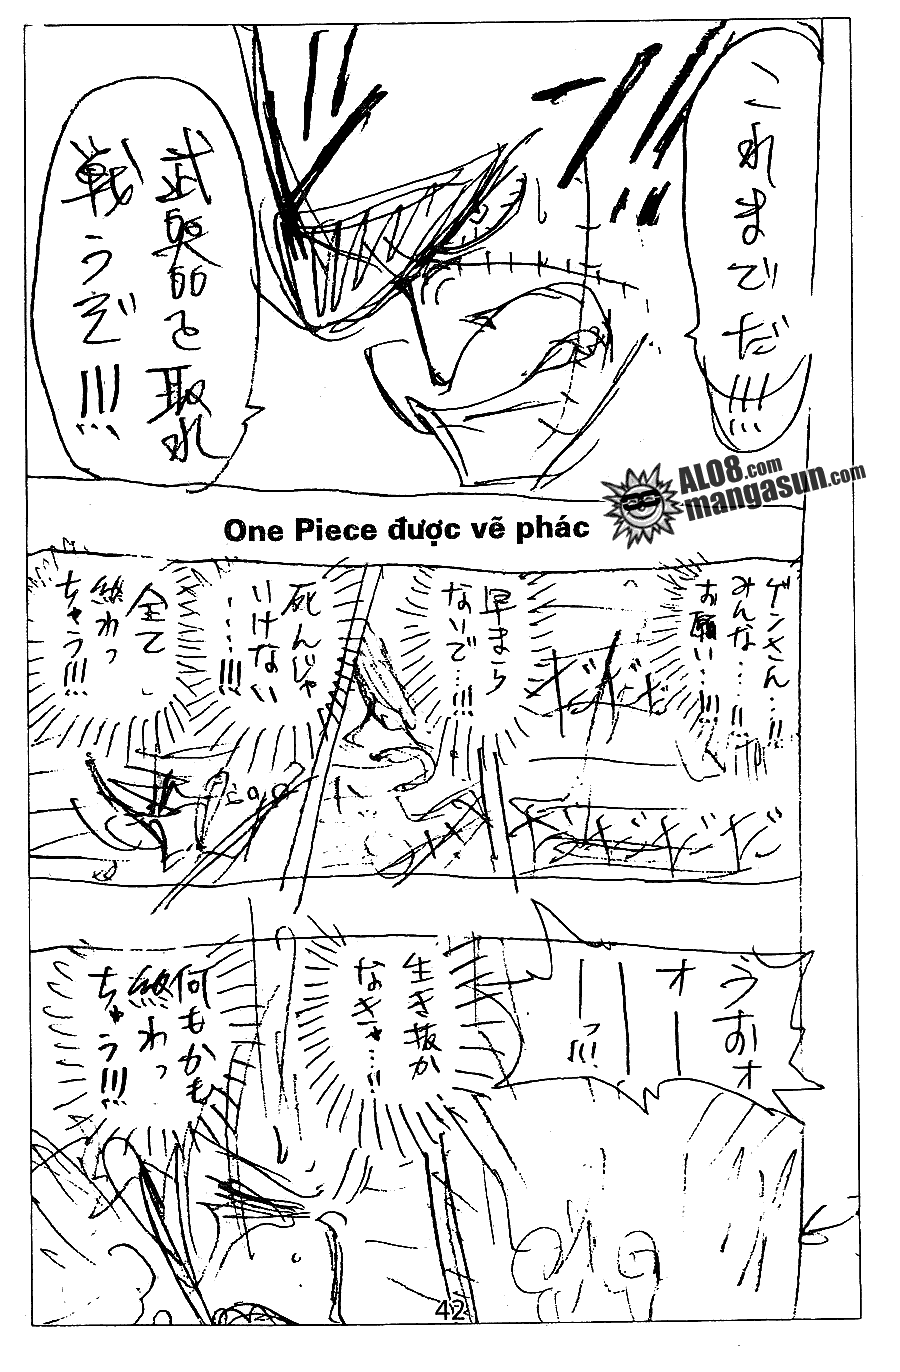 これまでだ!!!
武器を取れ
戦うぞ!!!
AL08.com
mangasun.com
One Piece được vẽ phác
ゲンさん…!!
みんな…!!
お願い…!!!
ギギギ
早まら
ないで…!!!
死んじゃ
いけない
……!!!
全て
終わっ
ちゃう!!!
うおォ
オー
ーー
ーっ!!!
生き抜か
なきゃ…!!
何もかも
終わっ
ちゃう!!!
42